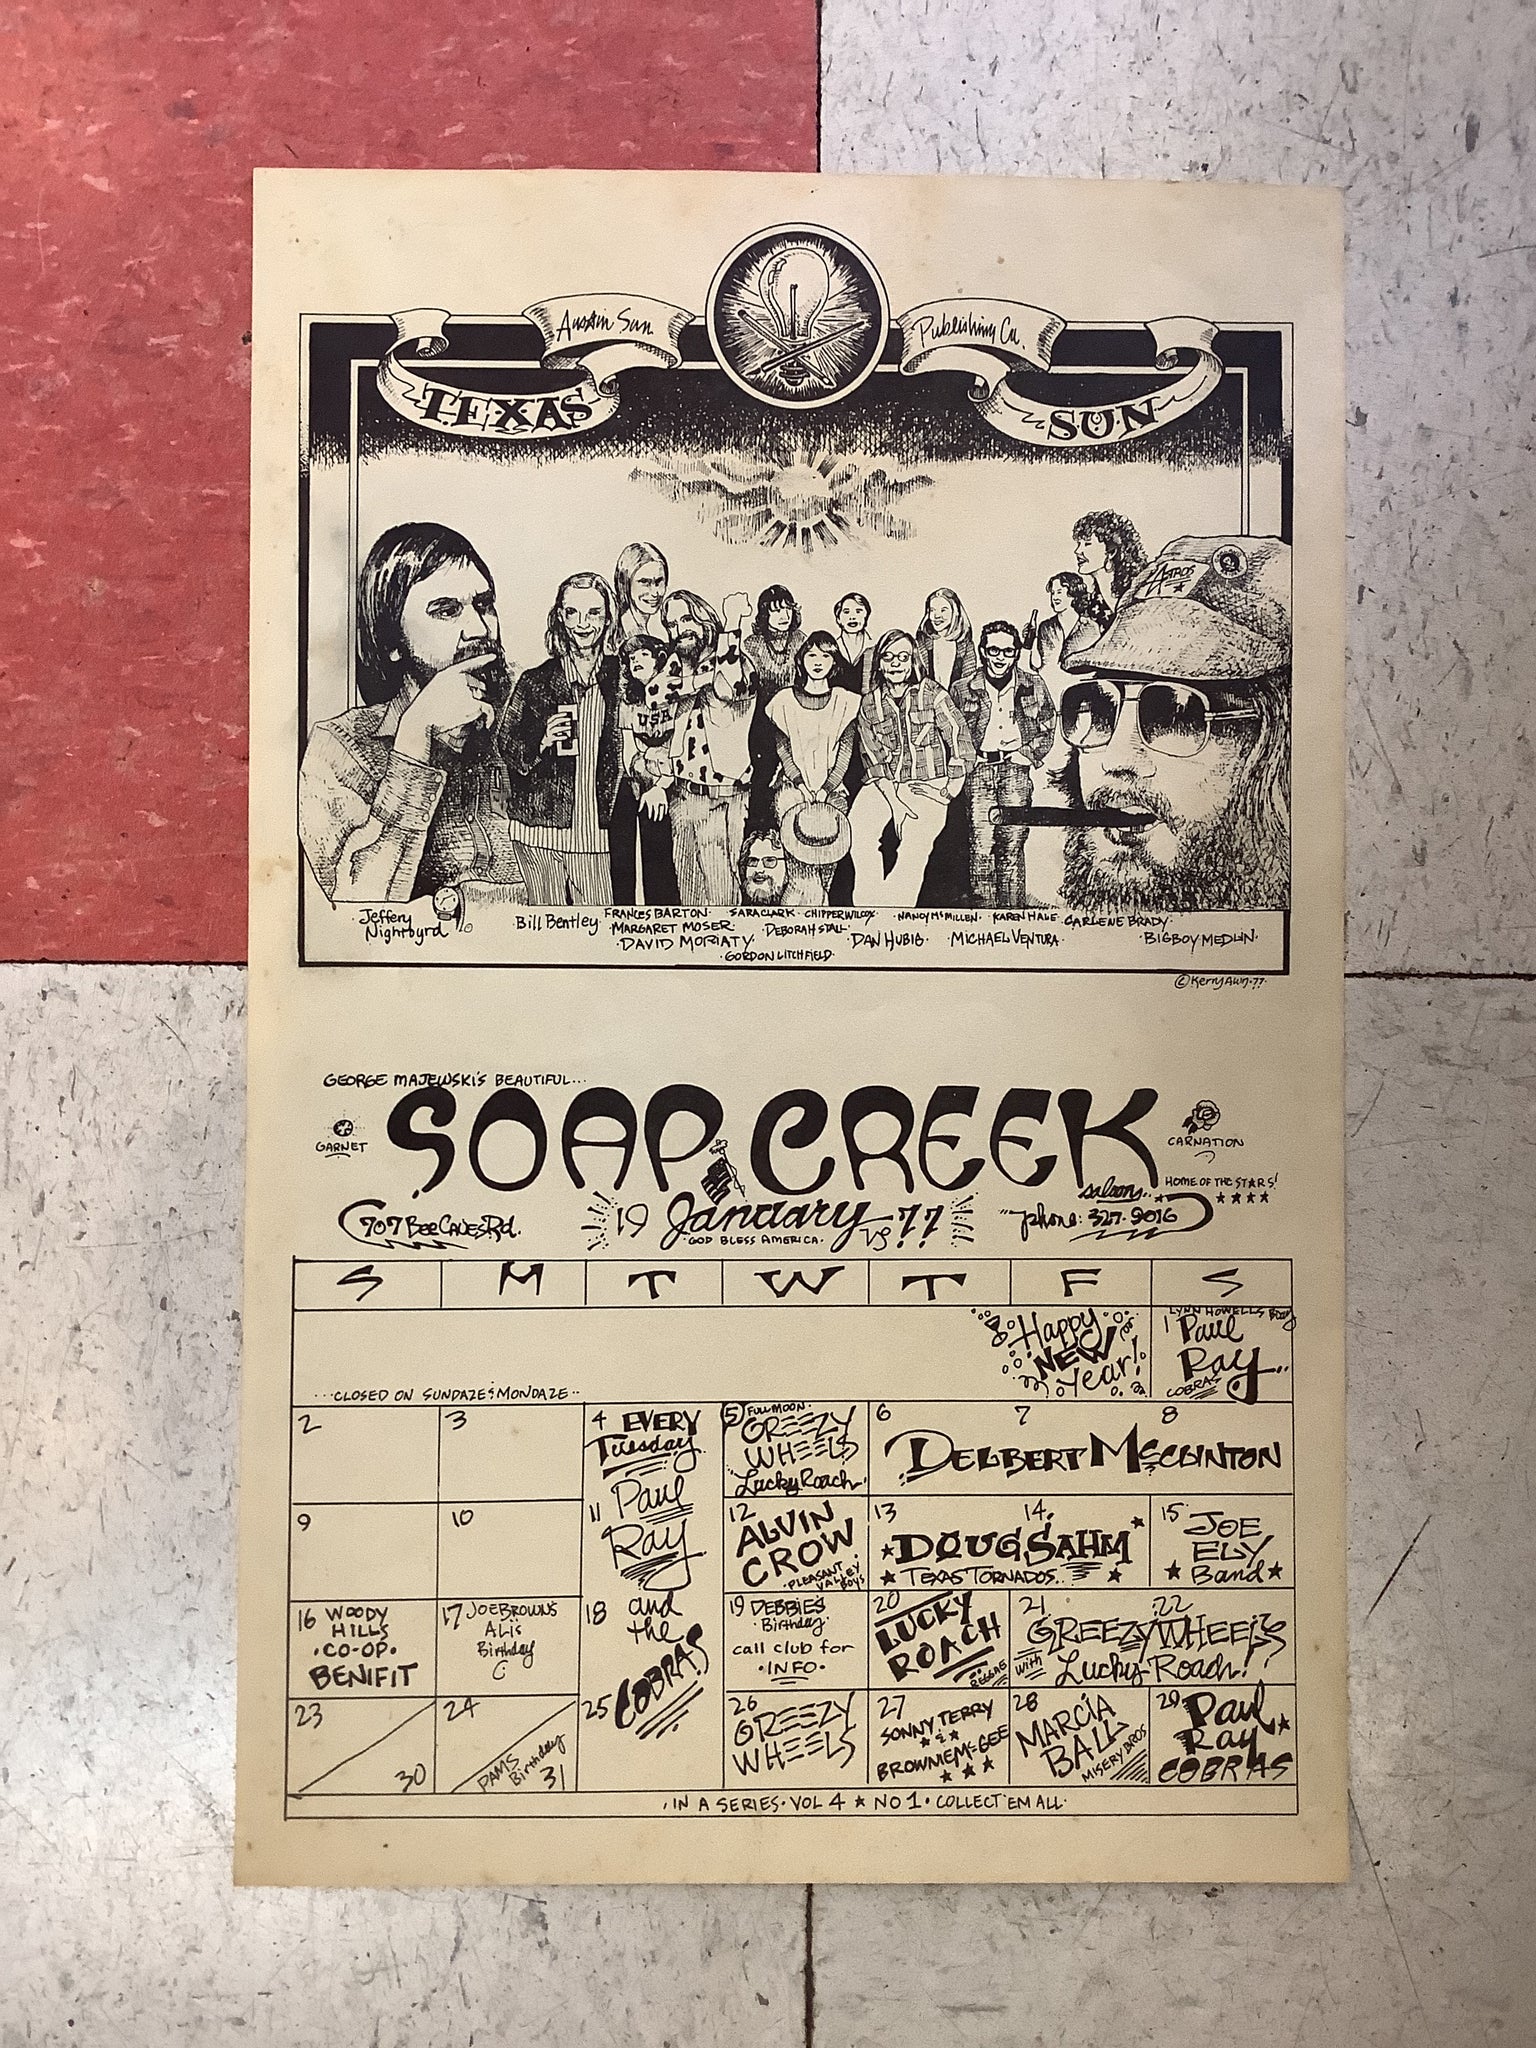 Austin Sun
Publishing Co.
TEXAS
SUN
ASTROS
USA
Jeffery
Nightbyrd
Bill Bentley
FRANCES BARTON
MARGARET MOSER
DAVID MORIATY
SARA CLARK
CHIPPER WILCOX
DEBORAH STALL
GORDON LITCHFIELD
DAN HUBIG
NANCY McMILLEN
KAREN HALE
MICHAEL VENTURA
CARLENE BRADY
BIGBOY MEDLIN
© Kerry Awn. 77.
GEORGE MAJEWSKI'S BEAUTIFUL...
SOAP CREEK
GARNET
CARNATION
saloon..
HOME OF THE STARS!
707 BEE CAVES RD.
19 January 77
GOD BLESS AMERICA.
phone: 327-9016
S M T W T F S
Happy
NEW
Year!
LYNN HOWELLS BDAY
1 Paul
Ray...
COBRAS
...CLOSED ON SUNDAZE & MONDAZE...
2
3
4 EVERY
Tuesday
5 FULL MOON.
GREEZY
WHEELS
Lucky Roach
6 7 8
DELBERT McCLINTON
9
10
11 Paul
Ray
12
ALVIN
CROW
PLEASANT
VALLEY
BOYS
13 14
DOUG SAHM
TEXAS TORNADOS..
15 JOE
ELY
Band
16 WOODY
HILLS
CO-OP.
BENIFIT
17 JOE BROWNS
ALIS
Birthday
18 and
the
COBRAS
19 DEBBIE'S
Birthday
call club for
INFO.
20
LUCKY
ROACH
REGGAE
21 22
GREEZY WHEELS
with
Lucky Roach!
23
30
24
PAM'S
Birthday
31
25
26
GREEZY
WHEELS
27
SONNY TERRY
&
BROWNIE McGEE
28
MARCIA
BALL
MISERY BROS
29 Paul
Ray
COBRAS
IN A SERIES • VOL 4 ★ NO 1 • COLLECT 'EM ALL